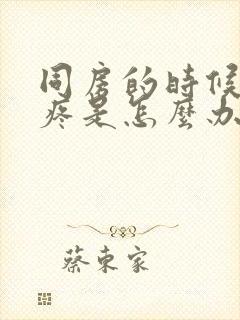 同房的時候
疼是怎麼办
蔡東家